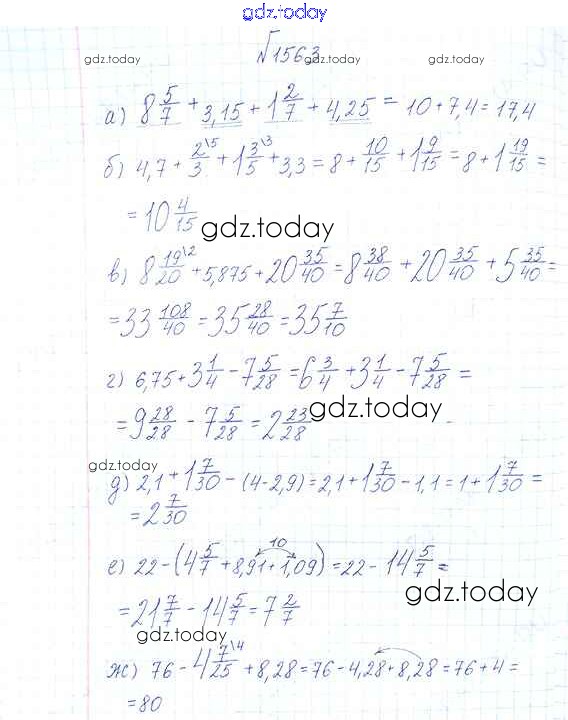 gdz.today
№1563
gdz.today gdz.today gdz.today
а) 8 5/7 + 3,15 + 1 2/7 + 4,25 = 10 + 7,4 = 17,4
б) 4,7 + 2/3 \5 + 1 3/5 \3 + 3,3 = 8 + 10/15 + 1 9/15 = 8 + 1 19/15 =
= 10 4/15
gdz.today
в) 8 19/20 \2 + 5,875 + 20 35/40 = 8 38/40 + 20 35/40 + 5 35/40 =
= 33 108/40 = 35 28/40 = 35 7/10
г) 6,75 + 3 1/4 - 7 5/28 = 6 3/4 + 3 1/4 - 7 5/28 =
= 9 28/28 - 7 5/28 = 2 23/28
gdz.today
gdz.today
д) 2,1 + 1 7/30 - (4 - 2,9) = 2,1 + 1 7/30 - 1,1 = 1 + 1 7/30 =
= 2 7/30
10
е) 22 - (4 5/7 + 8,91 + 1,09) = 22 - 14 5/7 =
gdz.today
= 21 7/7 - 14 5/7 = 7 2/7
gdz.today
ж) 76 - 4 7/25 \4 + 8,28 = 76 - 4,28 + 8,28 = 76 + 4 =
= 80